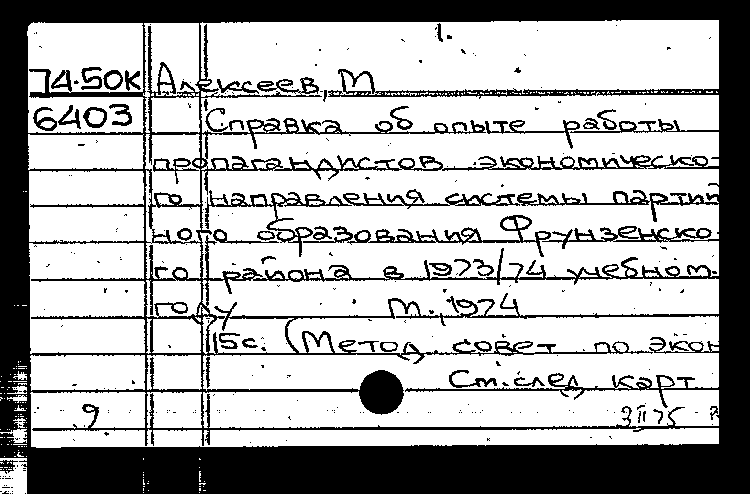 1.
74-50К Алексеев, М
6403 Справка об опыте работы
пропагандистов экономическо-
го направления системы партий
ного образования Фрунзенско-
го района в 1973/74 учебном.
году М., 1974
115с. (Метод совет по экон
См. след карт
9 3 II 75